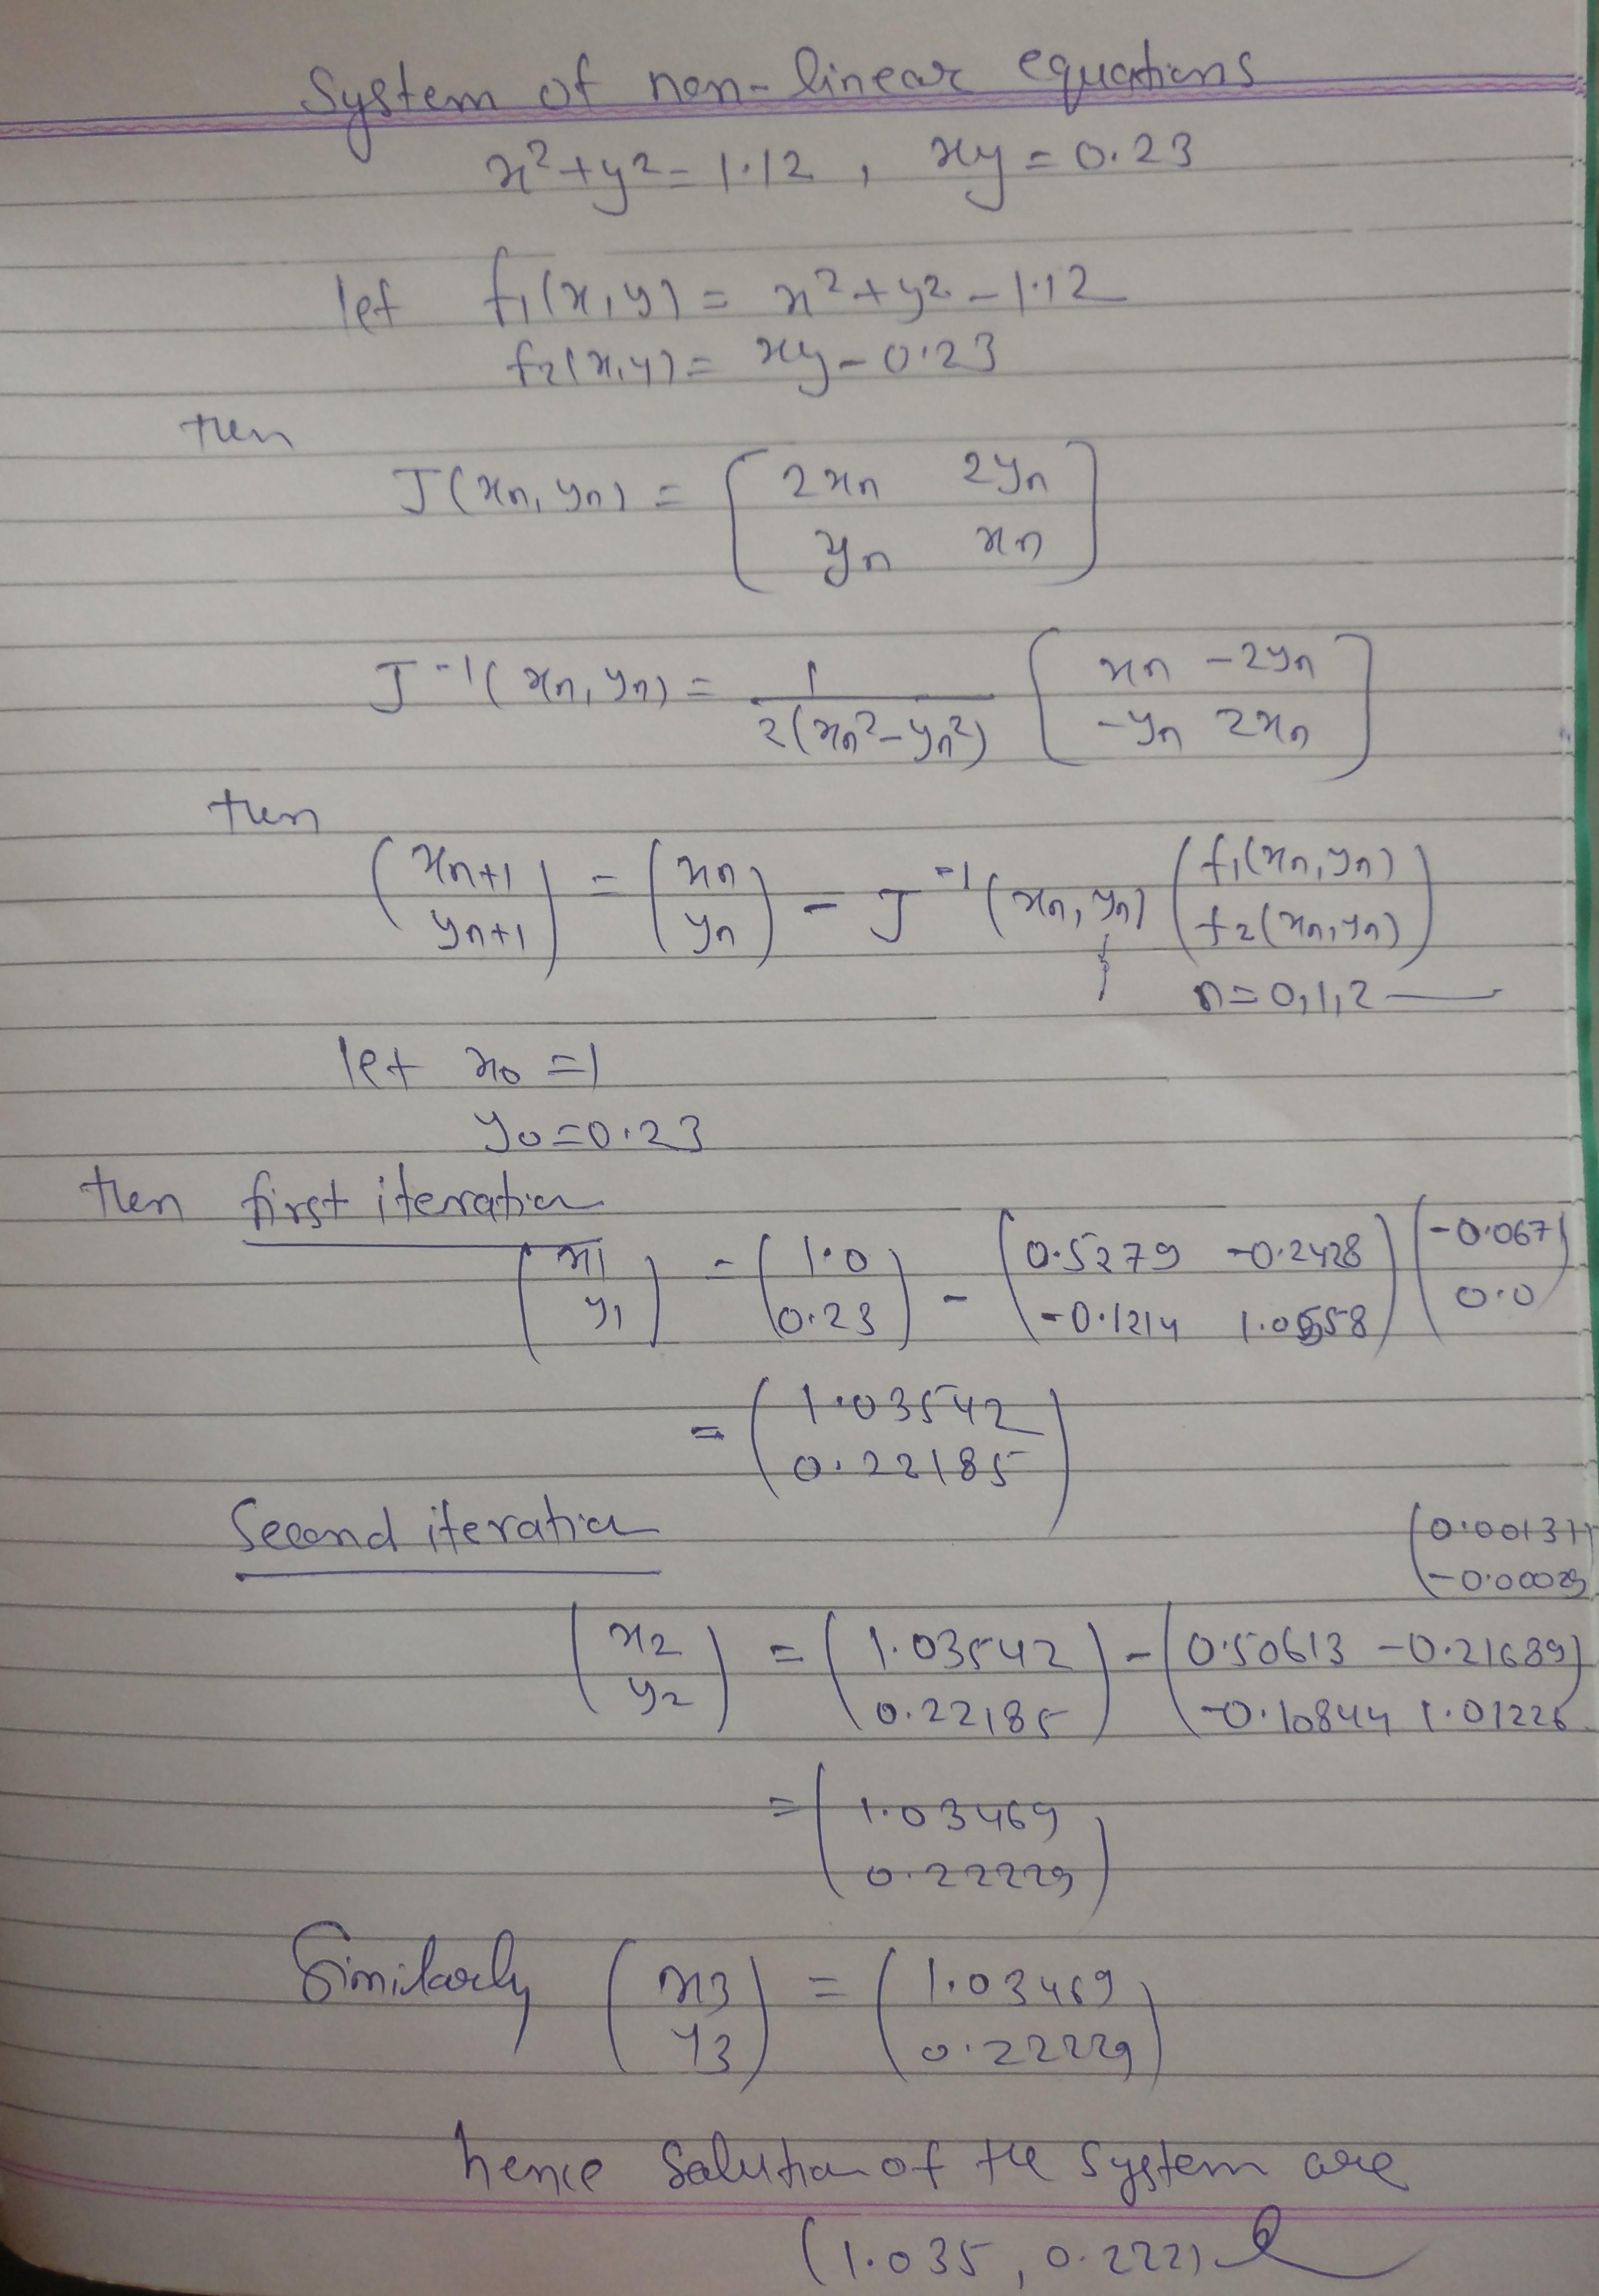 System of non-linear equations
x²+y²=1.12, xy=0.23
let f₁(x,y) = x²+y²-1.12
f₂(x,y) = xy-0.23
then
J(xₙ, yₙ) = [2xₙ 2yₙ
yₙ xₙ]
J⁻¹(xₙ, yₙ) = 1/2(xₙ²-yₙ²) [xₙ -2yₙ
-yₙ 2xₙ]
then
(xₙ₊₁
yₙ₊₁) = (xₙ
yₙ) - J⁻¹(xₙ, yₙ) (f₁(xₙ,yₙ)
f₂(xₙ,yₙ))
n=0,1,2—
let x₀=1
y₀=0.23
then first iteration
(x₁
y₁) = (1.0
0.23) - (0.5279 -0.2428
-0.1214 1.0558) (-0.067
0.0)
= (1.03542
0.22185)
Second iteration
(0.00131
-0.00029
(x₂
y₂) = (1.03542
0.22185) - (0.50613 -0.21689)
-0.10844 1.01226
= (1.03469
0.22229)
Similarly (x₃
y₃) = (1.03469
0.22229)
hence Solution of the System are
(1.035, 0.222)